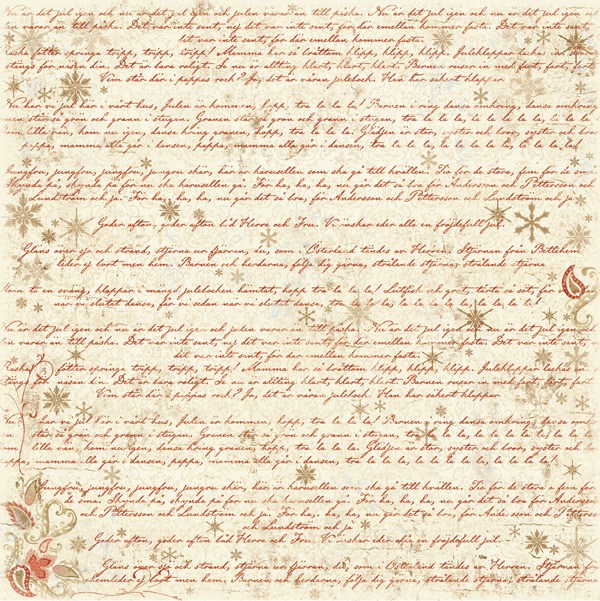 Nu är det jul igen och nu är det jul igen och julen varar än till påska. Nu är det jul igen och nu är det jul igen
och julen varar än till påska. Det var inte sant, nej det var inte sant, för där emellan kommer fasta. Det var inte sant, nej
det var inte sant, för där emellan kommer fasta.
Raska fötter springa tripp, tripp, tripp! Mamma har så bråttom, klipp, klipp, klipp. Julklappar lackas in
stänga för näsan din. Det är bara roligt. Se nu är allting klart, klart, klart. Barnen ruser in med fart, fart, fart
Vem står där i pappas rock? Jo, det är våran julbock. Han har säkert klappar
Nu har vi jul här i vårt hus, Julen är kommen, hopp, tra la la la! Barnen i ring dansa omkring, dansa omkring.
står så grön och grann i stugan. Granen står så grön och grann i stugan, tra la la la la, la la la la, la la la la.
lilla vän, kom nu igen, dansa kring granen, hopp, tra la la la. Glädjen är stor, syster och bror, syster och bror
pappa, mamma alla går i dansen, pappa, mamma alla går i dansen, tra la la la la, la la la la, la la la la!
Jungfru, jungfru, jungfru, jungfru skär, här är karusellen som ska gå till kvällen. Tio för de stora, fem för de små.
Skynda på, skynda på för nu ska karusellen gå. För ha, ha, ha, nu går det så bra för Andersson och Pettersson och
Lundström och ja. För ha, ha, ha, nu går det så bra, för Andersson och Pettersson och Lundström och ja
Goder afton, goder afton både Herre och Fru. Vi önskar eder alla en fröjdefull jul.
Glans över sjö och strand, stjärna ur fjärran, du, som i Österland tändes av Herren. Stjärnan från Betlehem
leder ej bort men hem. Barnen och herdarna, följa dig gärna, strålande stjärna, strålande stjärna
Hoppa te en sväng, klappar i mängd julebocken hämtat, hopp tra la la la! Lutfisk och gröt, tårta så söt, får
när vi slutat dansa, får vi sedan när vi slutat dansa, tra la la la, la la la la, la la la la!
Nu är det jul igen och nu är det jul igen och julen varar än till påska. Nu är det jul igen och nu är det jul igen
och julen varar än till påska. Det var inte sant, nej det var inte sant, för där emellan kommer fasta. Det var inte sant, nej
det var inte sant, för där emellan kommer fasta.
Raska fötter springa tripp, tripp, tripp! Mamma har så bråttom, klipp, klipp, klipp. Julklappar lackas in
stänga för näsan din. Det är bara roligt. Se nu är allting klart, klart, klart. Barnen ruser in med fart, fart, fart
Vem står där i pappas rock? Jo, det är våran julbock. Han har säkert klappar
Nu har vi jul här i vårt hus, Julen är kommen, hopp, tra la la la! Barnen i ring dansa omkring, dansa
står så grön och grann i stugan. Granen står så grön och grann i stugan, tra la la la la, la la la la, la la la la.
lilla vän, kom nu igen, dansa kring granen, hopp, tra la la la. Glädjen är stor, syster och bror, syster
pappa, mamma alla går i dansen, pappa, mamma alla går i dansen, tra la la la, la la la la, la la la la!
Jungfru, jungfru, jungfru, jungfru skär, här är karusellen som ska gå till kvällen. Tio för de stora fem för
de små. Skynda på, skynda på för nu ska karusellen gå. För ha, ha, ha, nu går det så bra för Andersson
och Pettersson och Lundström och ja. För ha, ha, ha, nu går det så bra, för Andersson och Pettersson
och Lundström och ja
Goder afton, goder afton både Herre och Fru. Vi önskar eder alla en fröjdefull jul.
Glans över sjö och strand, stjärna ur fjärran, du, som i Österland tändes av Herren. Stjärnan från
Betlehem leder ej bort men hem, Barnen och herdarna, följa dig gärna, strålande stjärna, strålande stjärna